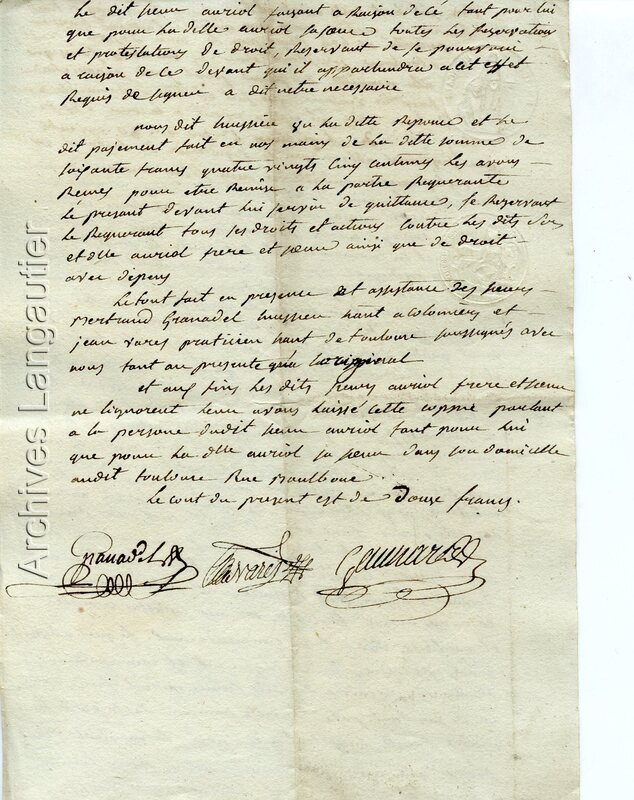 Le dit sieur auriol faisant a Raison de Cé tant pour lui
que pour La delle auriol sa sœur toutes les Reservations
et protestations de droit, Reservant de se pourvoir
a raison de ce devant qui il appartiendra a cet effet
Requis de signer a dit n'etre necessaire
nous dit huissier vu La ditte Reponce et Le
dit paiement fait en nos mains de La ditte somme de
soixante francs quatre vingts Cinq centimes Les avons
Reçues pour etre Remise a La partie Requerante
Le present devant Lui servir de quittance, se Reservant
Le Requerant tous ses droits et actions Contre Les dits Srs
et delle auriol frere et sœur ainsi que de droit
avec depens
Le tout fait en presence et assistance des sieurs
Bertrand Granadel huissier hant a colomiers et
jean vares praticien hant de toulouse soussignés avec
nous tant au presente qu'a Loriginal
et aux fins Les dits sieurs auriol frere et sœur
ne Lignorent Leur avons Laissé cette coppie parlant
a la persone dudit sieur auriol tant pour Lui
que pour La delle auriol sa sœur dans son domicille
audit toulouse Rue
Le cout du present est de Douse francs.
Granadel
Vares
Archives Langautier